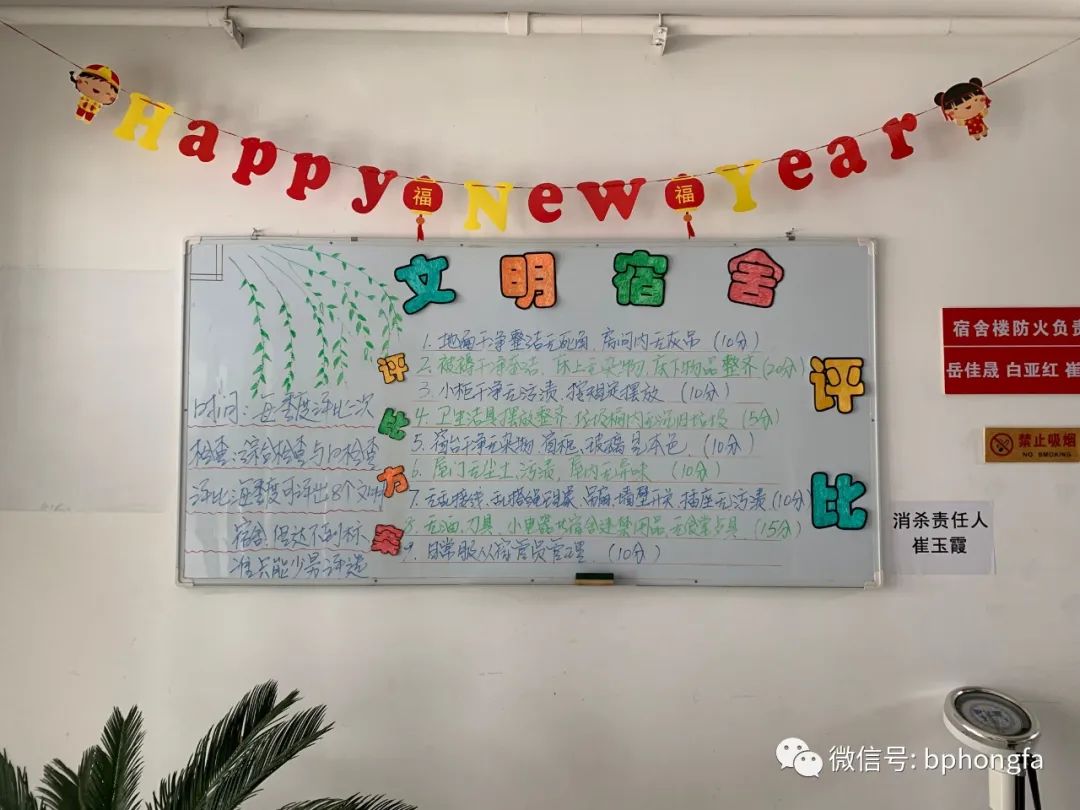 Happy New Year
福
福
文明宿舍
评比
评比方案
1. 地面干净整洁无死角,房间内无灰吊 (10分)
2. 被褥干净整洁,床上无杂物,床下物品整齐 (20分)
3. 小柜干净无污渍,按规定摆放 (10分)
4. 卫生洁具摆放整齐,垃圾桶内无过夜垃圾 (5分)
5. 窗台干净无杂物,窗框、玻璃见本色 (10分)
6. 屋门无尘土、污渍,屋内无异味 (10分)
7. 无乱接线、乱搭绳现象,吊扇、墙壁开关、插座无污渍 (10分)
8. 无油、刀具、小电器等宿舍违禁用品,无食堂桌具 (15分)
9. 日常服从宿管员管理 (10分)
时间:每季度评比一次
检查:综合检查与日检查
评比:每季度可评出8个文明
宿舍,但达不到标
准只能少另评选
宿舍楼防火负责
岳佳晟 白亚红 崔
禁止吸烟
NO SMOKING
消杀责任人
崔玉霞
微信号: bphongfa